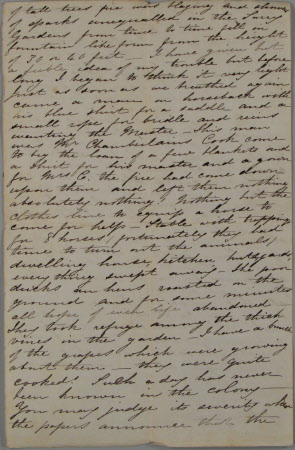 of tall trees fire was blazing and showers
of sparks unequalled in the Surry
Gardens from time to time fell in
fountain like form from the height
of 50 or 60 feet I have given but
a feeble idea of my trouble but before
long I began to think it very light
Just as soon as we breathed again
came a man on horseback with
his blue shirt for a saddle and a
small rope for bridle and reins
wanting the Master - This man
was Mr Chamberlains Cook come
to beg the loan of a few blankets and
a shirt for his master and a gown
for Mrs C. the fire had come down
upon them and left them nothing
absolutely nothing! Nothing but the
clothes line to equip a horse to
come for help - Stable with trappings
for 8 horses, fortunately they had
time to turn out the animals,
dwelling house, kitchen, outyards,
every thing swept away - The poor
ducks and hens roasted on the
ground and for some minutes
all hope of even life abandoned -
They took refuge among the thick
vines in the garden I have a bunch
of the grapes which were growing
about them - they were quite
cooked! Such a day has never
been known in the colony -
You may judge its severity when
the papers announce that the